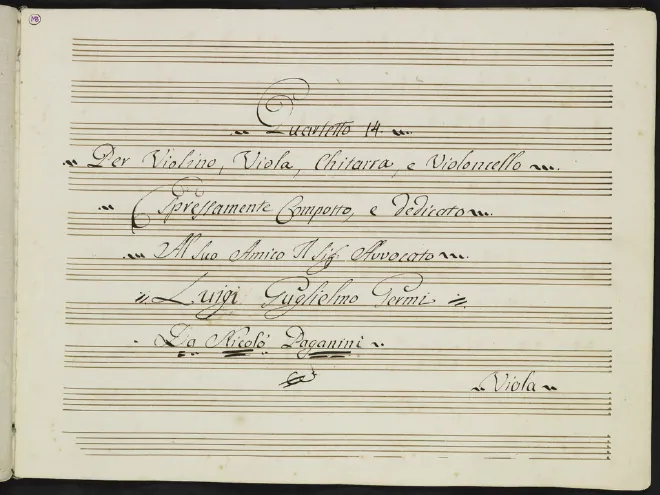 Quartetto 14.
Per Violino, Viola, Chitarra, e Violoncello
Espressamente Composto, e Dedicato
Al Suo Amico Il Sig.r Avvocato
Luigi Guglielmo Germi
Da Nicolò Paganini
Viola